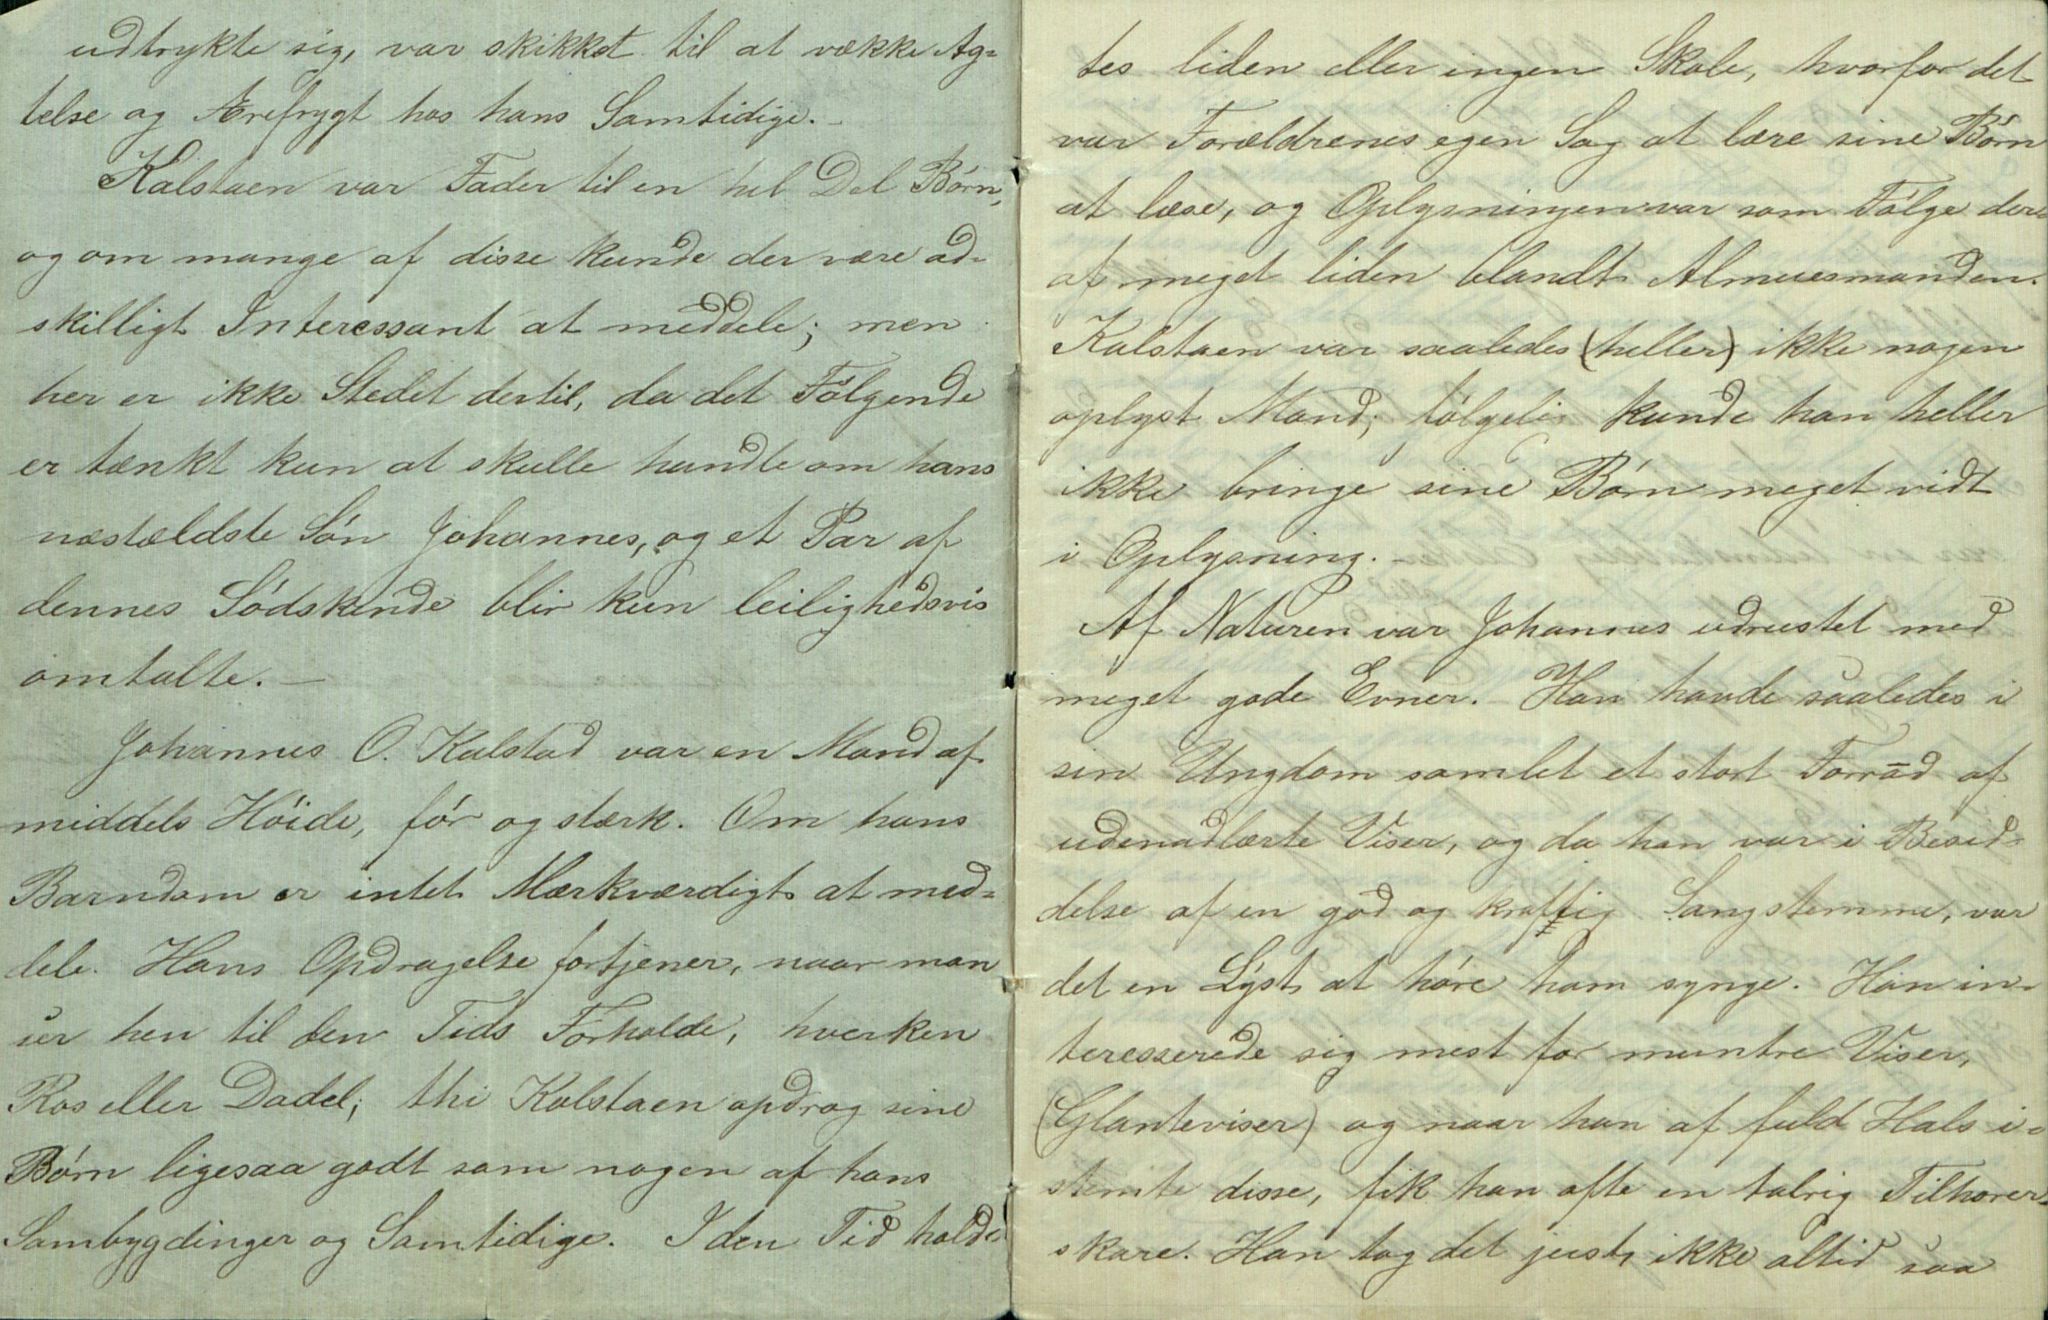 udtrykte sig, var skikket til at vække Ag-
telse og Ærefrygt hos hans Samtidige.—
Kalstaen var Fader til en hel Del Børn,
og om mange af disse kunde der være ad-
skilligt Interessant at meddele; men
her er ikke Stedet dertil, da det Følgende
er tænkt kun at skulle handle om hans
næstældste Søn Johannes, og et Par af
dennes Södskende blir kun leilighedsvis
omtalte.—
Johannes O. Kalstad var en Mand af
middels Høide, før og stærk. Om hans
Barndom er intet Mærkværdigt at med-
dele. Hans Opdragelse fortjener, naar man
ser hen til den Tids Forholde, hverken
Ros eller Dadel; thi Kalstaen opdrog sine
Børn ligesaa godt som nogen af hans
Sambygdinger og Samtidige. I den Tid holdt
tes liden eller ingen Skole, hvorfor det
var Forældrenes egen Sag at lære sine Børn
at læse, og Oplysningen var som Følge der-
af meget liden blandt Almuesmanden.
Kalstaen var saaledes (heller) ikke nogen
oplyst Mand; følgeli kunde han heller
ikke bringe sine Børn meget vidt
i Oplysning.—
Af Naturen var Johannes udrustet med
meget gode Evner. Han havde saaledes i
sin Ungdom samlet et stort Forråd af
udenadlærte Viser, og da han var i Besid-
delse af en god og kraftig Sangstemme, var
det en Lyst at høre ham synge. Han in-
teresserede sig mest for muntre Viser,
(Glanteviser) og naar han af fuld Hals i-
stemte disse, fik han ofte en talrig Tilhører-
skare. Han tog det just ikke altid saa